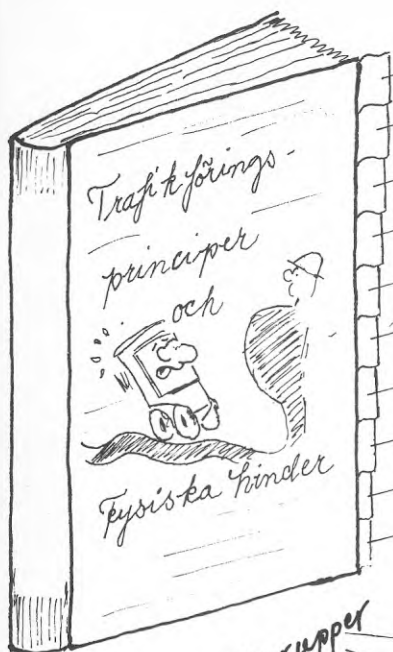 Trafikförings-
principer
och
Fysiska hinder